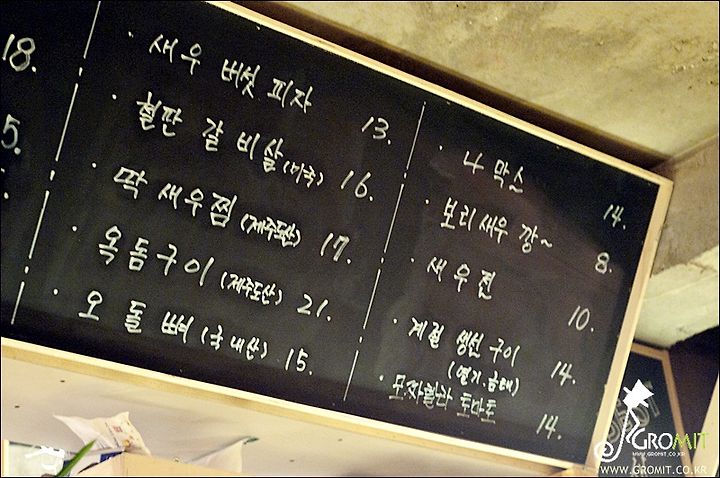 18.
5.
· 새우 버섯 피자 13.
· 철판 갈비살 (미국) 16.
· 딱새우찜 (제주도산) 17.
· 옥돔구이 (제주도산) 21.
· 오돌뼈 (국내산) 15.
· 나막스 14.
· 보리새우 깡~ 8.
· 새우전 10.
· 계절 생선 구이 14.
(열기.금태)
· 모짜렐라 토마토 14.
GROMIT
WWW.GROMIT.CO.KR
WWW.GROMIT.CO.KR